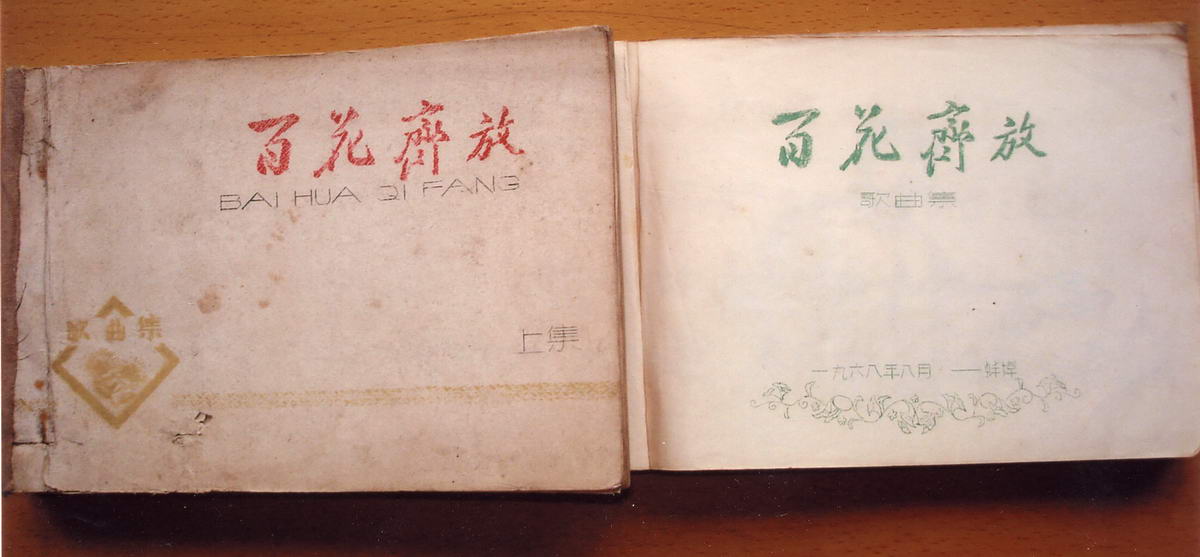 百花齊放
BAI HUA QI FANG
歌曲集
上集
百花齊放
歌曲集
一九六八年八月 ——蚌埠